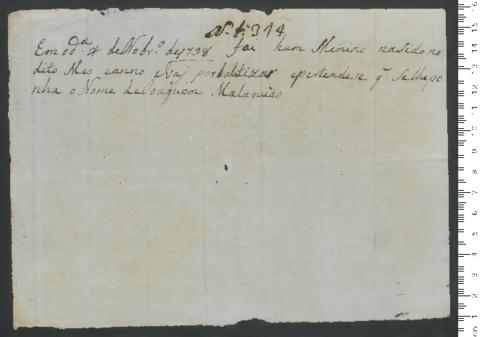 Nº 1:314
Em o d.ª 7 de Nobr.º de 1798 foi hum Minino nasido, no
dito Mes, e anno e vaj por baltizar epertendese q. se lhe po
nha o Nome de Joaquem Malaquias